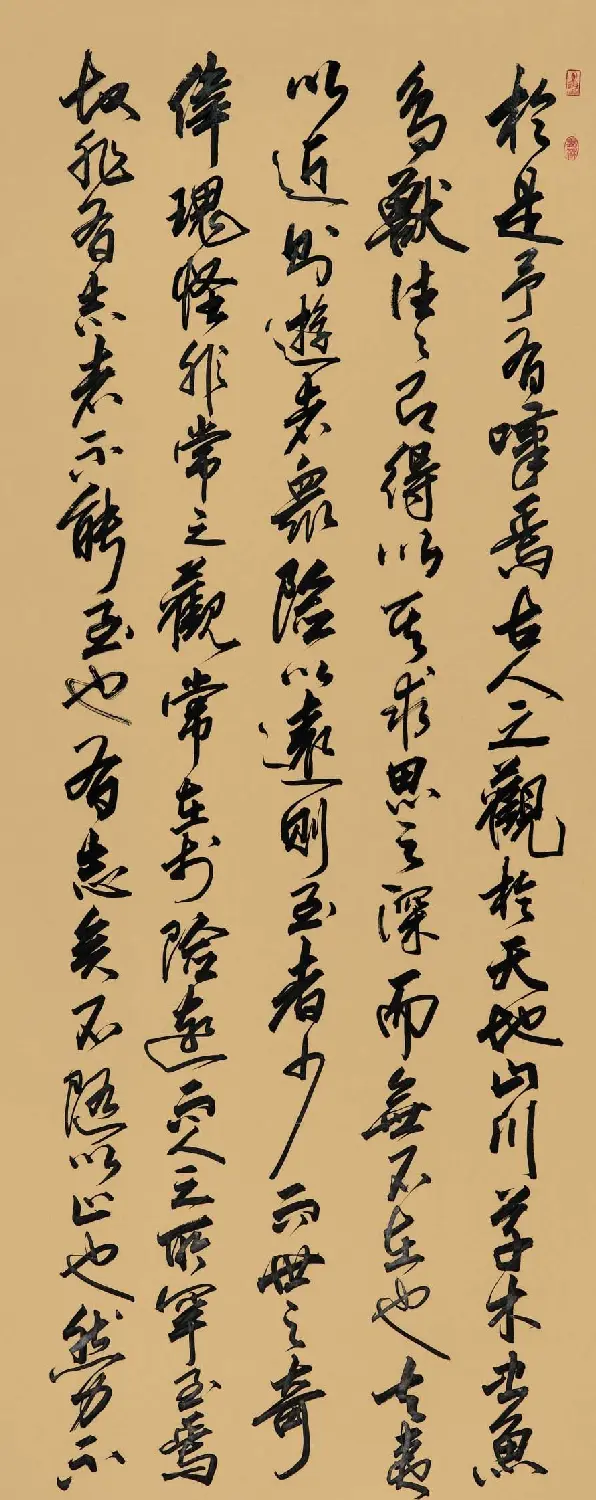 於是予有嘆焉古人之觀於天地山川草木虫魚
鳥獸往々有得以其求思之深而無不在也夫夷
以近則遊者眾險以遠則至者少而世之奇
偉瑰怪非常之觀常在於險遠而人之所罕至焉
故非有志者不能至也有志矣不隨以止也然力不